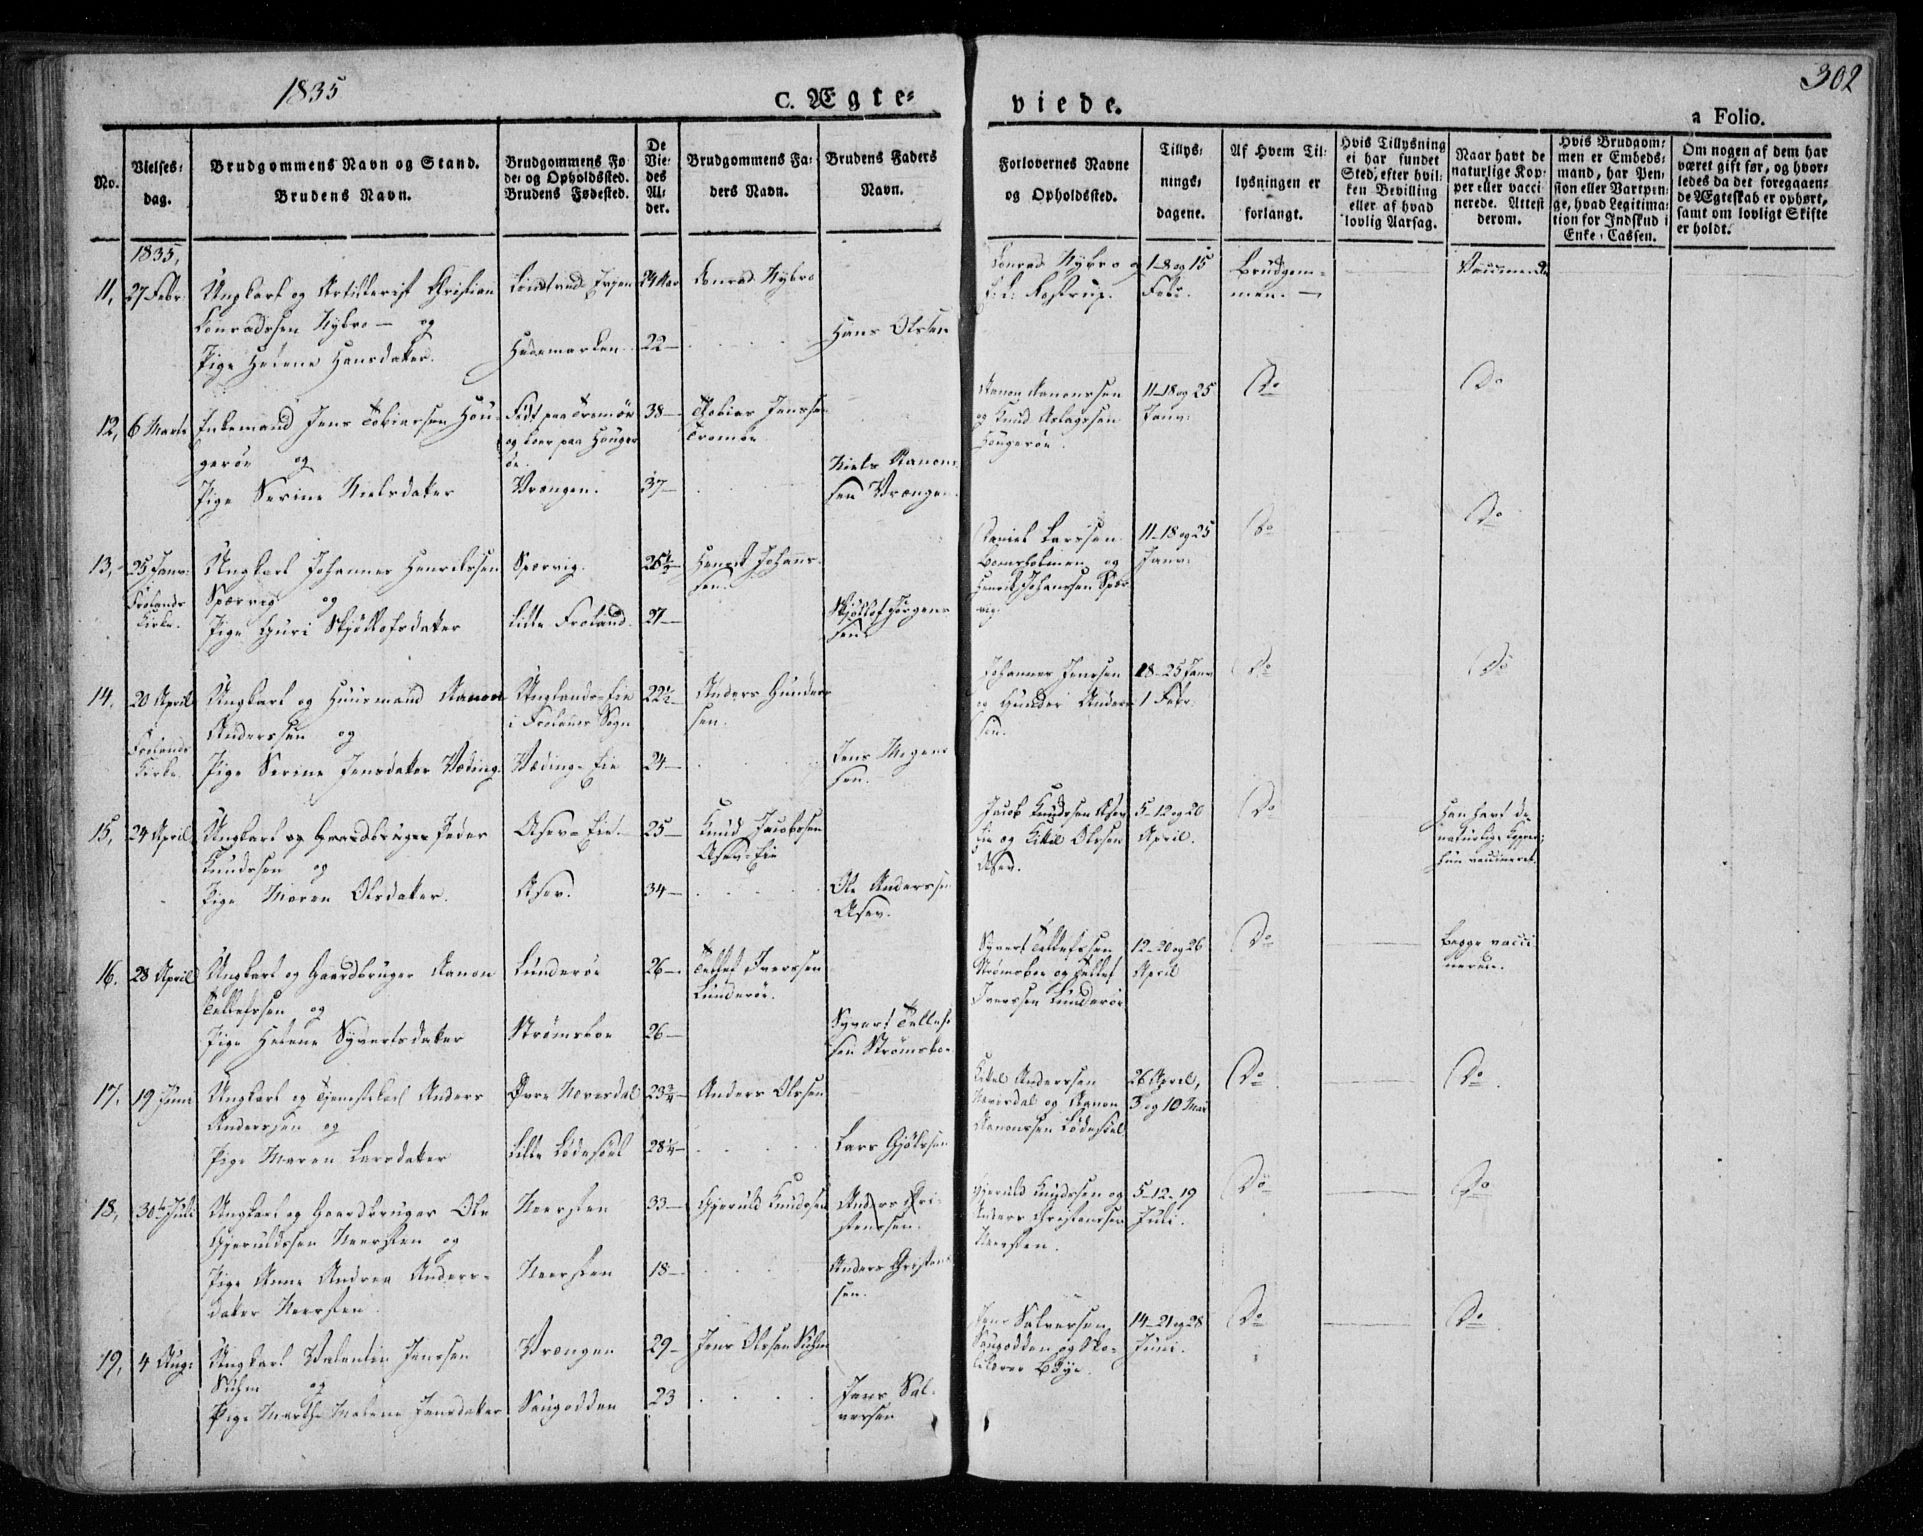 1835
C. Ægte-
viede.
302
a Folio.
No.
Vielses-
dag.
Brudgommens Navn og Stand.
Brudens Navn.
Brudgommens Fø
de- og Opholdssted.
Brudens Fødested.
De
Vie-
des
Al-
der.
Brudgommens Fa-
ders Navn.
Brudens Faders
Navn.
Forlovernes Navne
og Opholdssted.
Tillys-
nings-
dagene.
Af Hvem Til-
lysningen er
forlangt.
Hvis Tillysning
ei har fundet
Sted, efter hvil-
ken Bevilling
eller af hvad
lovlig Aarsag.
Naar havt de
naturlige Kop-
per eller vacci
nerede. Attest
derom.
Hvis Brudgom-
men er Embeds-
mand, har Pen-
sion eller Vartpen-
ge, hvad Legitima-
tion for Indskud i
Enke-Cassen.
Om nogen af dem har
været gift før, og hvor-
ledes da det foregaaen-
de Ægteskab er ophørt,
samt om lovligt Skifte
er holdt.
1835,
11, 27 Febr: Ungkarl og Artillerist Christian
Conradssen Nybro — og
Pige Helene Hansdatter.
24 Aar Conrad Nybro
Hedemarken. 22 — Hans Olsen
Conrad Nybro og
1–8 og 15
Febr.
Brudgom-
men. —
Vaccinerede
12, 6 Marts Enkemand Jens Tobiassen Hou-
gerøe og
Pige Serine Nielsdatter
Født paa Tromøe
og boer paa Houger
øe.
Vrængen.
38 —
37 —
Tobias Jenssen
Tromøe.
Niels Aanon-
sen Vrængen.
Aanon Aanonssen
og Knud Aslagssen
Hougerøe
11–18 og 25
Janv:
Do
Do
13, 25 Janv:
Frolands
Kirke.
Ungkarl Johannes Henrikssen
Spærvig og
Pige Guri Skjøllofsdatter
Spærvig.
Lille Froland.
25½ —
27 —
Henrik Johans-
sen.
Skjøllof Jørgens
sen
Daniel Larssen
Bomsholmen og
Henrik Johanssen Spær
vig.
11–18 og 25
Janv:
Do
Do
14. 20 April
Frolands
Kirke.
Ungkarl og Huusmand Aanon
Anderssen og
Pige Serine Jensdatter Væding
Unglands-Eie
i Frolands Sogn
Væding-Eie
22½ —
24 —
Anders Gunders
sen.
Jens Mogens
sen.
Johannes Jenssen
og Gunder Anders
sen.
18–25 Janv
1 Febr.
Do
Do
15, 24 April Ungkarl og Gaardbruger Peder
Knudssen og
Pige Maren Olsdatter.
Asev-Eie.
Asev.
25 —
34 —
Knud Jacobssen
Asev-Eie
Ole Anderssen
Asev.
Jacob Knudssen Asev
Eie og Kittel Olssen
Asev.
5–12 og 20
April.
Do
Han havt de
naturlige Kopper;
hun vaccineret.
16. 28 April Ungkarl og Gaardbruger Aanon
Tellefssen og
Pige Helene Syvertsdatter
Lunderøe
Strømsboe
26 —
26 —
Tellef Iverssen
Lunderøe.
Syvert Tellef-
sen Strømsboe
Syvert Tellefssen
Strømsboe og Tellef
Iverssen Lunderøe
12–20 og 26
April
Do
Begge vacci
nerede.
17. 19 Juni Ungkarl og Tjenestekarl Anders
Anderssen og
Pige Maren Larsdatter
Øvre Næversdal
Lille Lødesøel
23¾ —
28¼ —
Anders Olssen
Lars Gjølssen
Kittel Anderssen
Næversdal og Aanon
Aanonssen Lødesøel
26 April,
3 og 10 Mai
Do
Do.
18, 30te Juli Ungkarl og Gaardbruger Ole
Gjeruldssen Neersten og
Pige Anne Andrea Anders-
datter Neersten.
Neersten
Neersten
33 —
18 —
Gjeruld Knudssen
Anders Cri-
stenssen.
Anders Christens
sen.
Gjeruld Knudssen og
Anders Christenssen
Neersten.
5–12–19
Juli.
Do
Do
19, 4 Aug: Ungkarl Valentin Jenssen
Suhm og
Pige Marthe Malene Jensdatter
Vrængen
Saugodden
29 —
23
Jens Olssen Suhm
Jens Sal-
vessen
Jens Salvessen
Saugodden og Sko-
lelærer Bøye.
14–21 og 28
Juni.
Do
Do